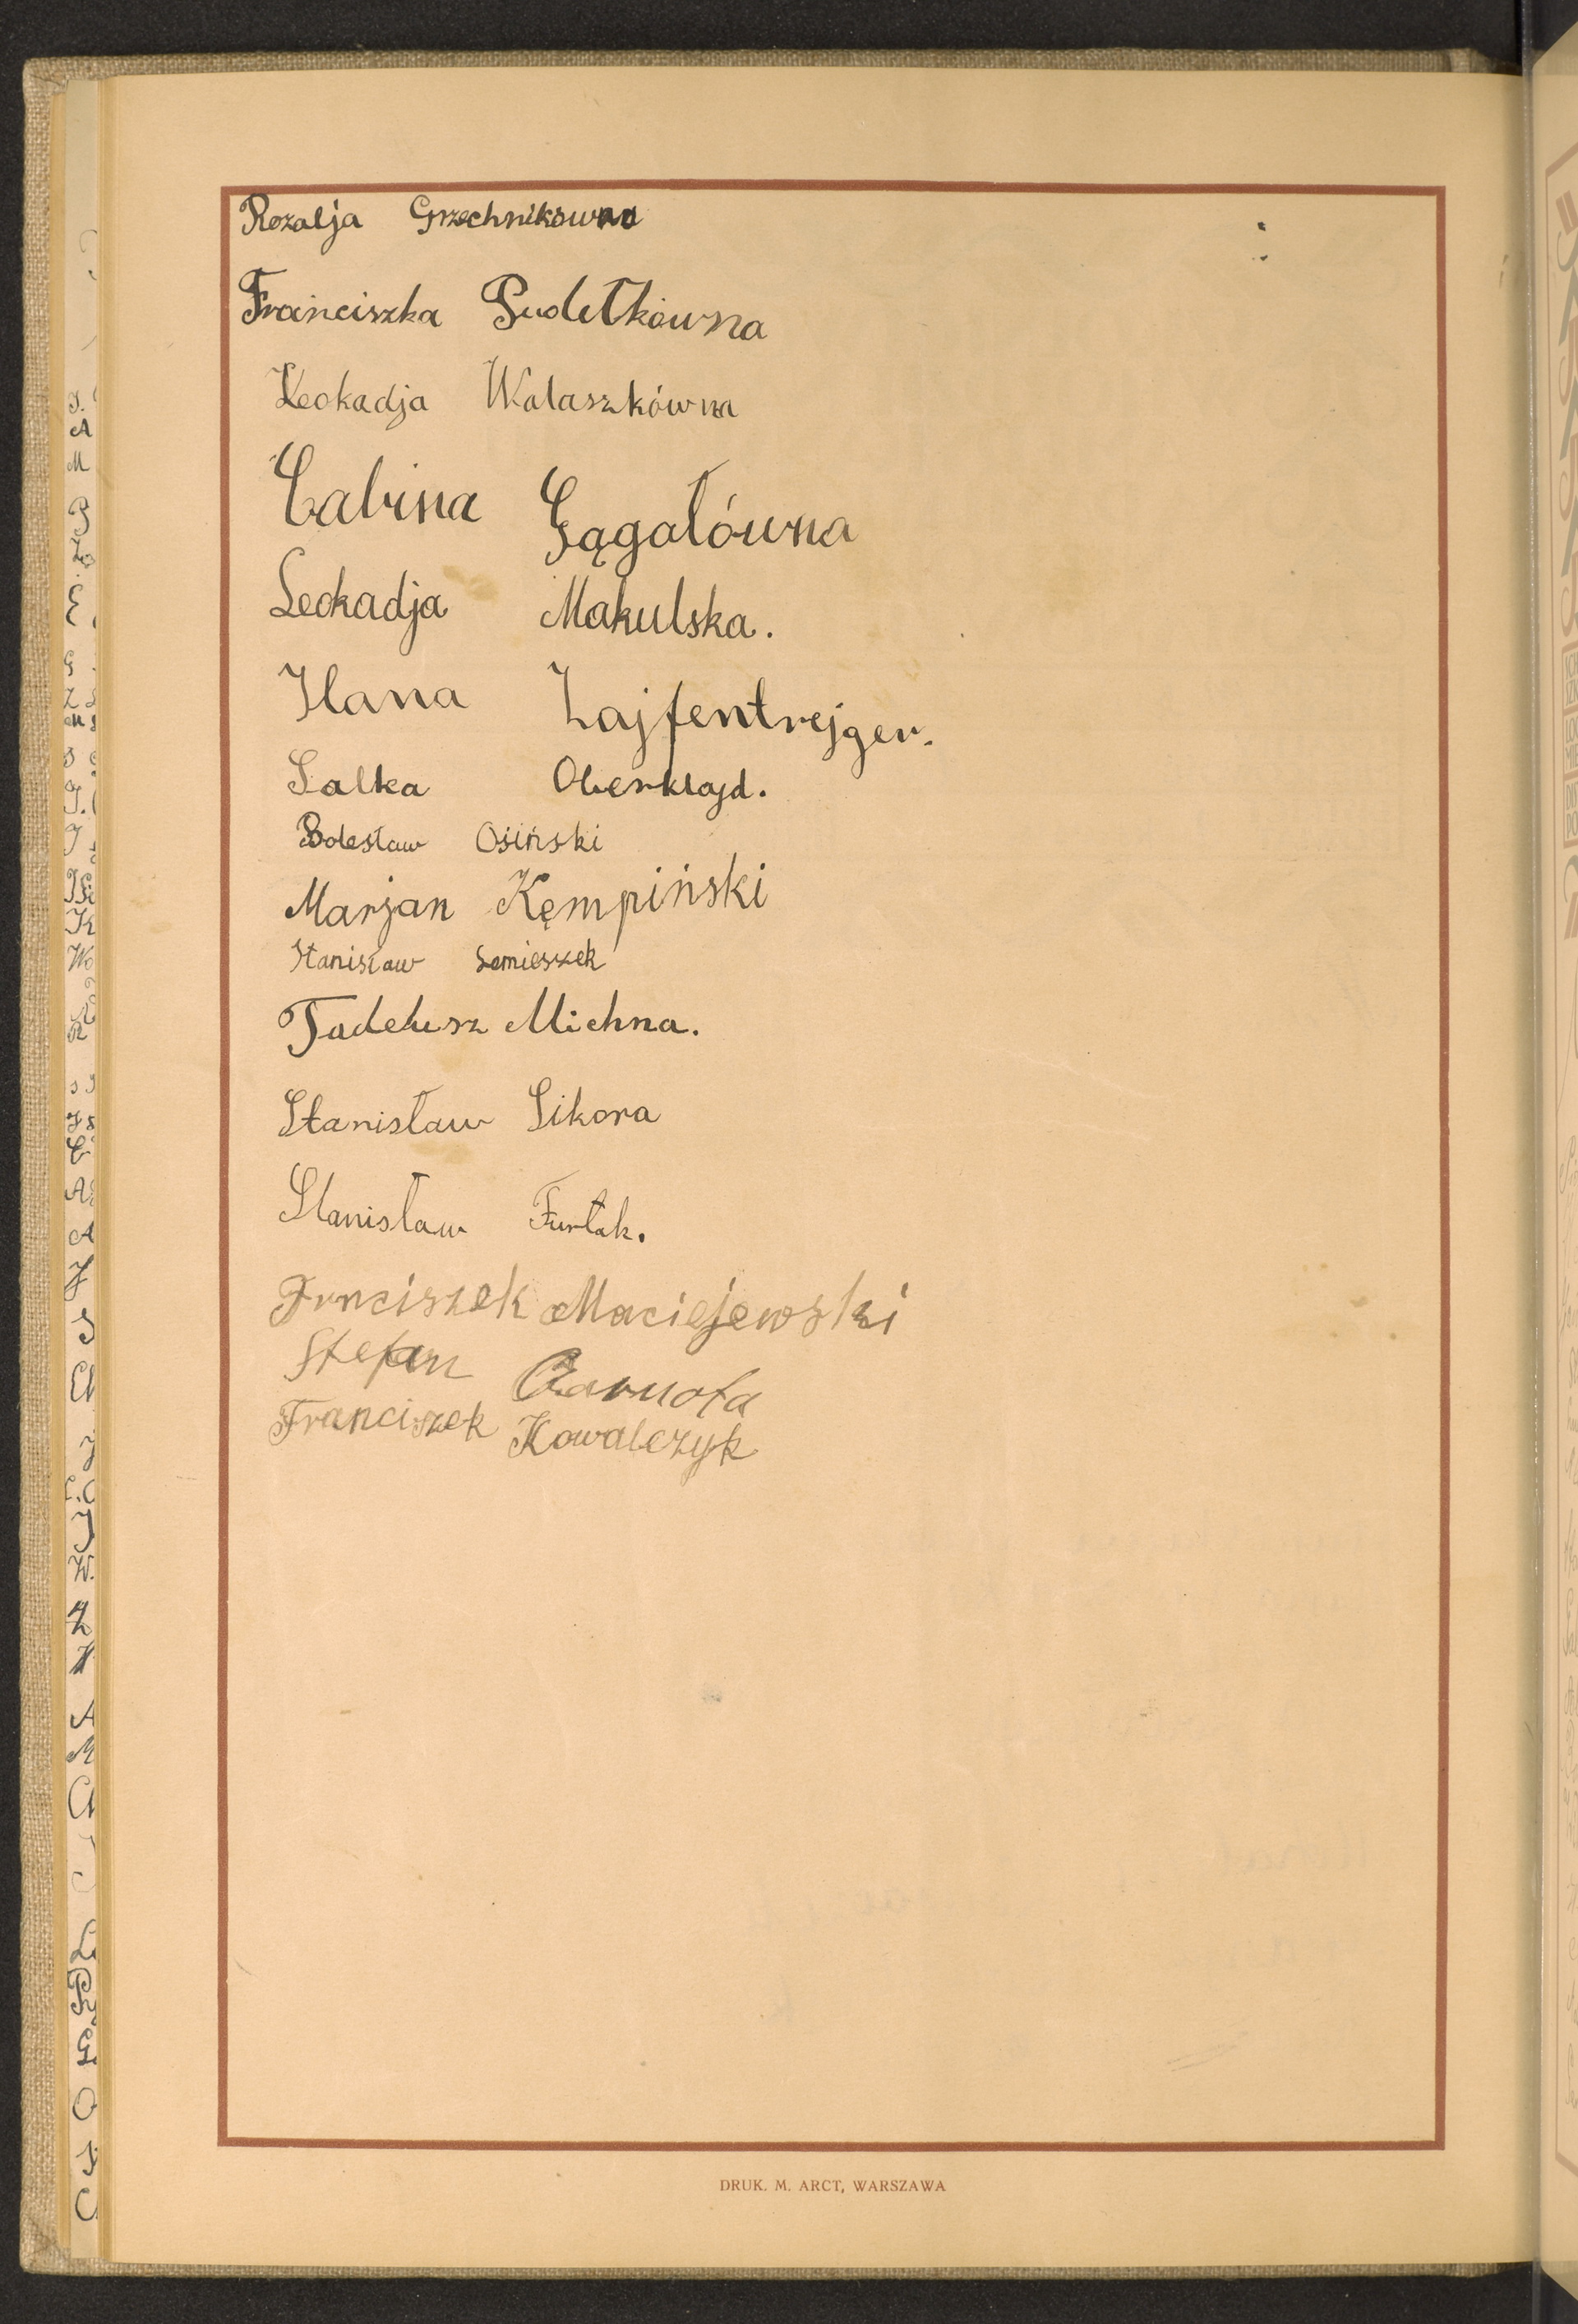 Rozalja Grzechnikówna
Franciszka Pudełkówna
Leokadja Walaszkówna
Sabina Gągałówna
Leokadja Makulska.
Hana Zajfentrejger.
Salka Oberklajd.
Bolesław Osiński
Marjan Kęmpiński
Stanisław Semieszek
Tadeusz Michna.
Stanisław Sikora
Stanisław Furtak.
Frnciszek Maciejewski
Stefan Czarnota
Franciszek Kowalczyk
DRUK. M. ARCT, WARSZAWA